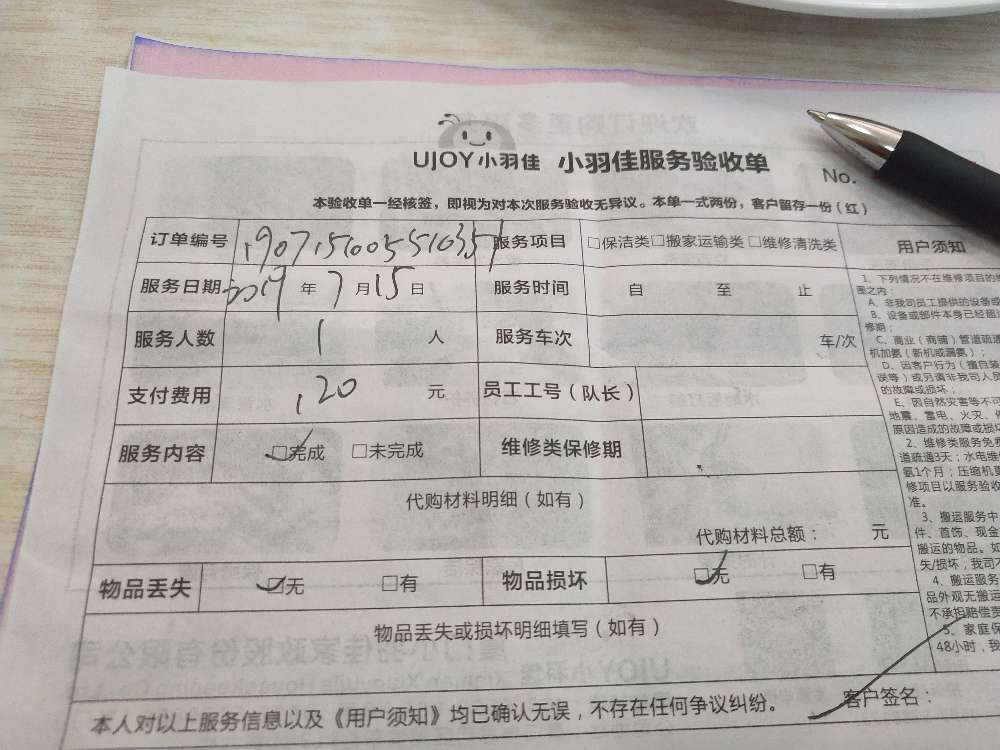 UJOY小羽佳 小羽佳服务验收单
No.
本验收单一经核签，即视为对本次服务验收无异议。本单一式两份，客户留存一份（红）
订单编号 服务项目 □保洁类□搬家运输类□维修清洗类 用户须知
服务日期 2019年7月15日 服务时间 自 至 止
服务人数 1 人 服务车次 车/次
支付费用 120 元 员工工号（队长）
服务内容 □完成 □未完成 维修类保修期
代购材料明细（如有）
代购材料总额： 元
物品丢失 □无 □有 物品损坏 □无 □有
物品丢失或损坏明细填写（如有）
本人对以上服务信息以及《用户须知》均已确认无误，不存在任何争议纠纷。 客户签名：
1、下列情况不在维修项目的
围之内：
A、非我司员工提供的设备或
B、设备或部件本身已经超
修期；
C、商业（商铺）管道疏通
机加氨（新机或漏氨）；
D、因客户行为（擅自装
误等）或另请非我司人员
的故障或损坏；
E、因自然灾害等不可
地震、雷电、火灾、
原因造成的故障或损坏
2、维修类服务免费
道疏通3天；水电维
氨1个月；压缩机
修项目以服务验收
准。
3、搬运服务中
件、首饰、现金
搬运的物品。如
失/损坏，我司不
4、搬运服务
品外观无搬运
不承担赔偿责
5、家庭保
48小时，我